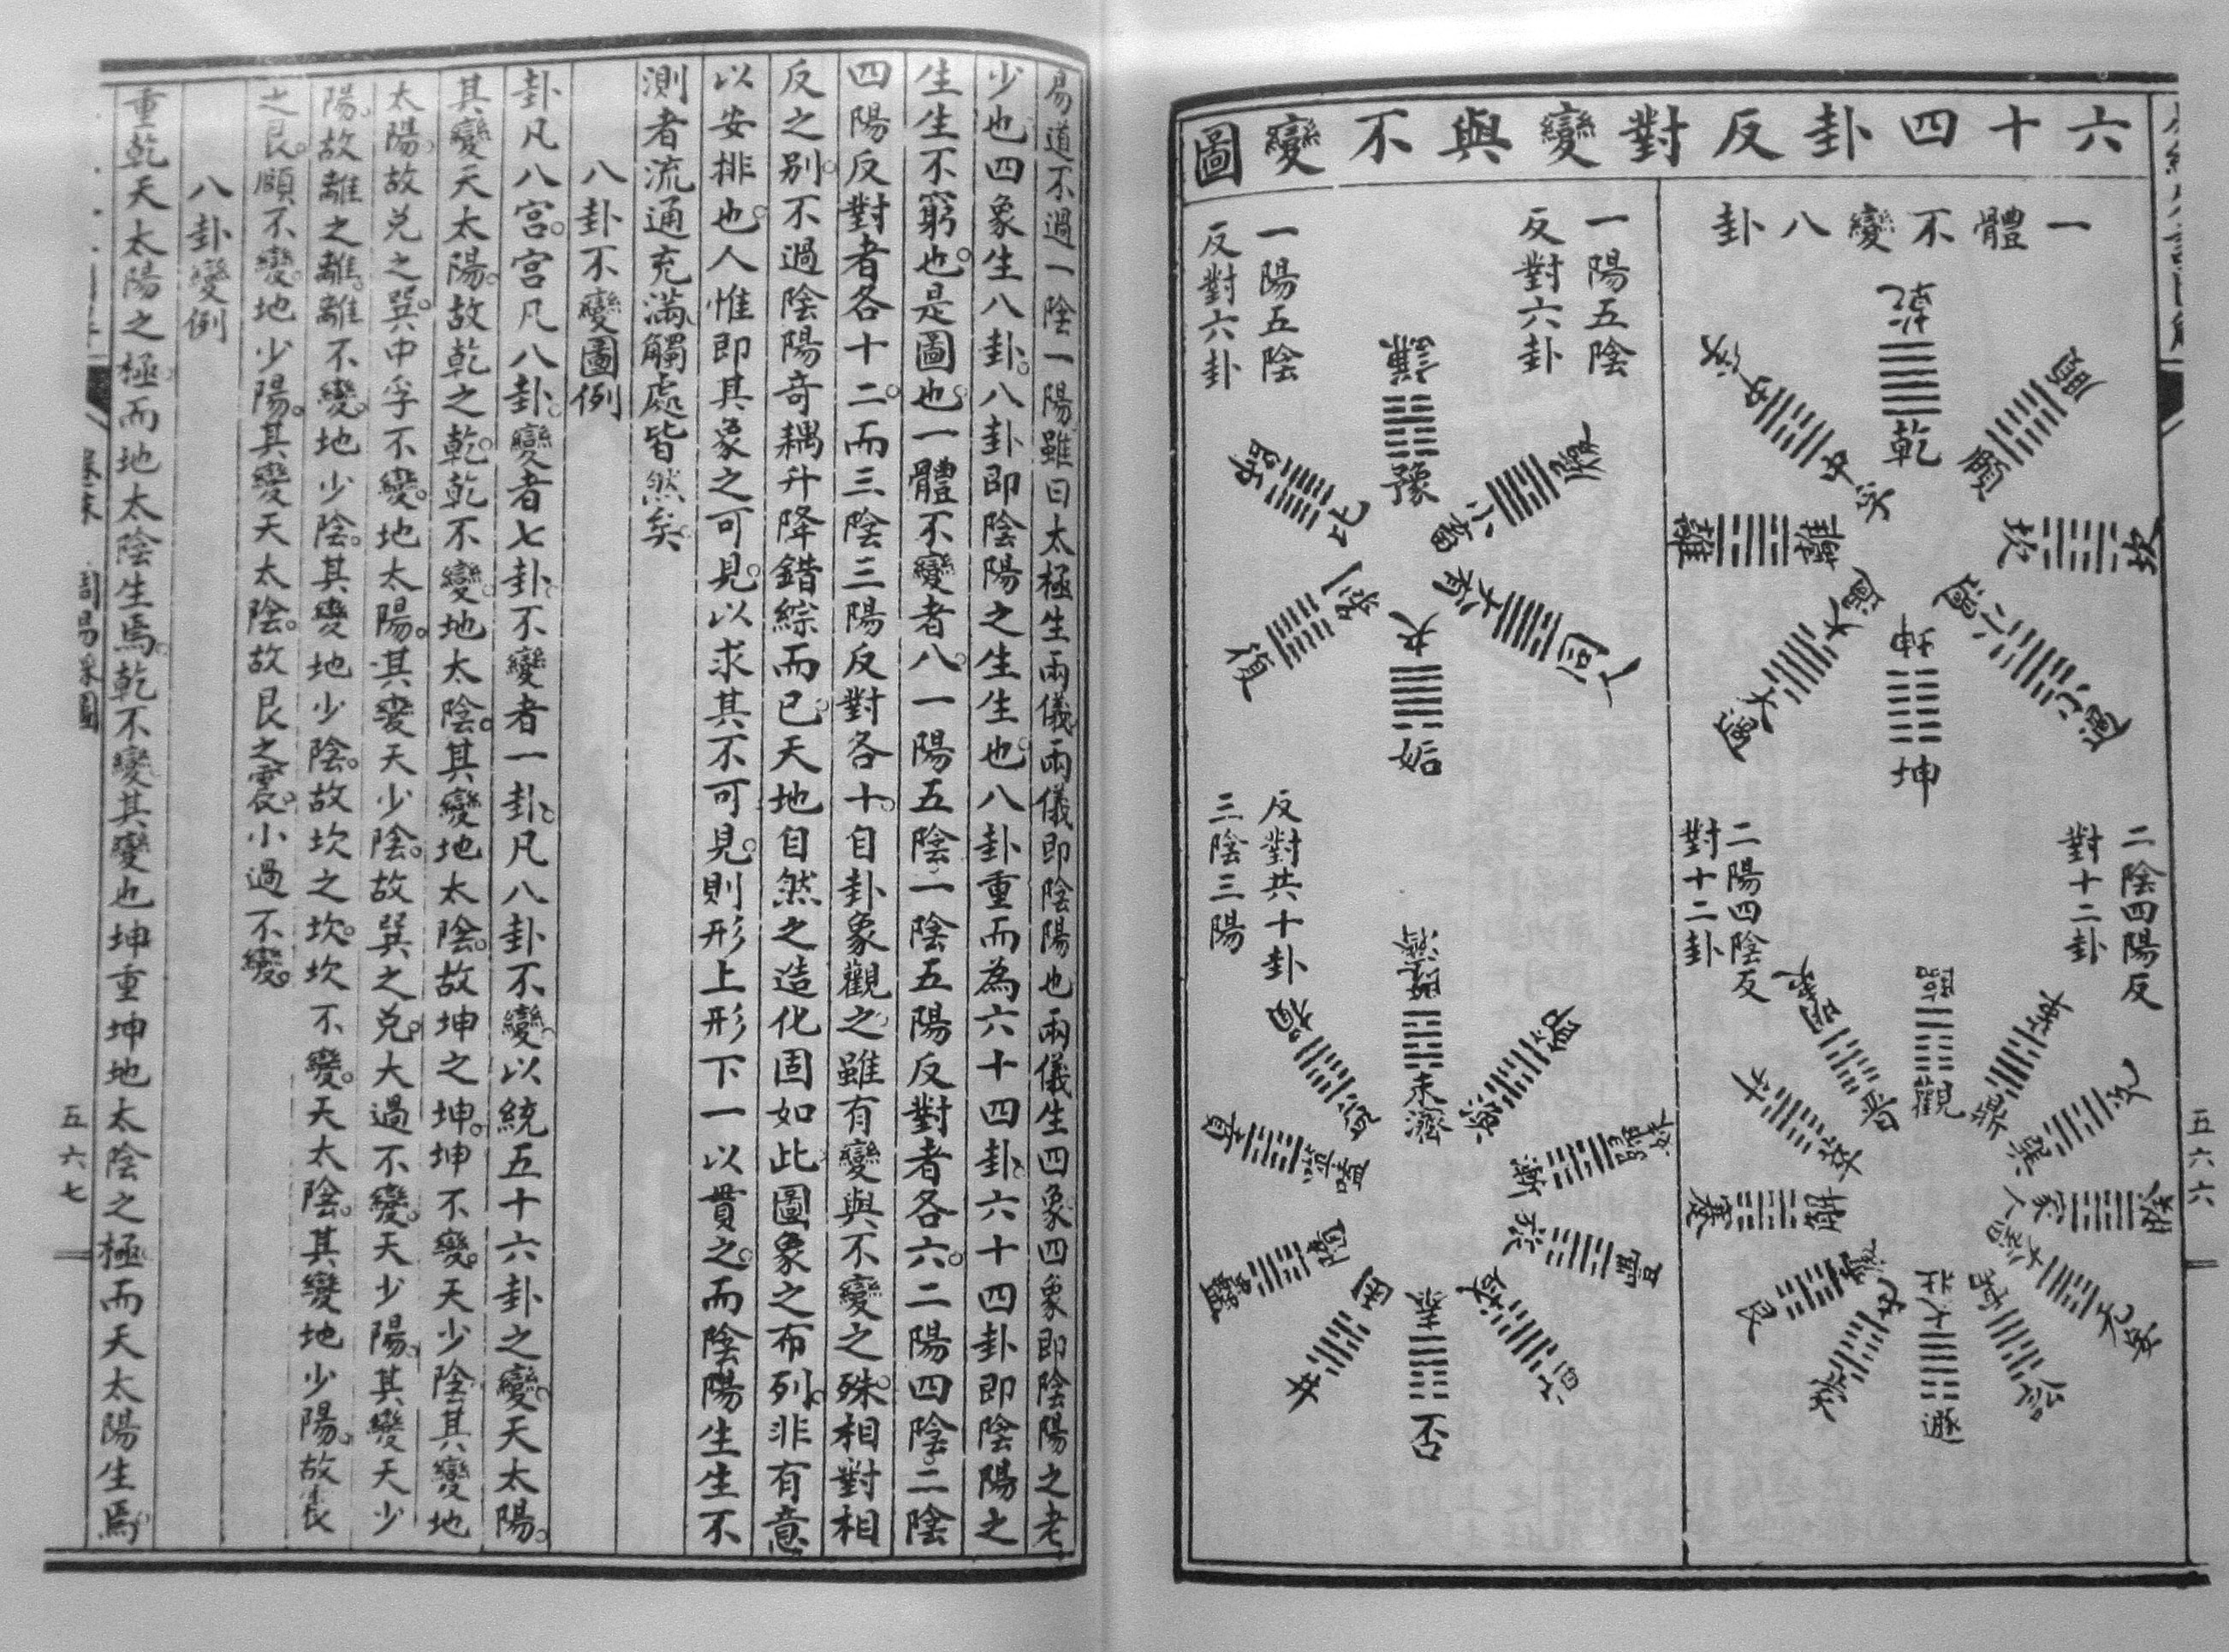 六十四卦反對變與不變圖
一體不變八卦
乾
乾
頤
頤
坎
坎
小過
小過
坤
坤
大過
大過
離
離
中孚
中孚
一陽五陰
反對六卦
一陽五陰
反對六卦
謙
豫
師
比
剝
復
小畜
履
大有
同人
夬
姤
二陰四陽反
對十二卦
二陽四陰反
對十二卦
臨
觀
革
鼎
兌
巽
睽
家人
大畜
无妄
需
訟
大壯
遯
艮
蹇
解
升
萃
明夷
晉
反對共十卦
三陰三陽
既濟
未濟
節
渙
歸妹
漸
豐
旅
咸
恒
泰
否
困
井
隨
蠱
噬嗑
賁
損
益
五六六
易道不過一陰一陽雖曰太極生兩儀兩儀即陰陽也兩儀生四象四象即陰陽之老
少也四象生八卦八卦即陰陽之生生也八卦重而為六十四卦六十四卦即陰陽之
生生不窮也是圖也一體不變者八一陽五陰一陰五陽反對者各六二陽四陰二陰
四陽反對者各十二而三陰三陽反對各十自卦象觀之雖有變與不變之殊相對相
反之別不過陰陽奇耦升降錯綜而已天地自然之造化固如此圖象之布列非有意
以安排也人惟即其象之可見以求其不可見則形上形下一以貫之而陰陽生生不
測者流通充滿觸處皆然矣
八卦不變圖例
卦凡八宮宮凡八卦變者七卦不變者一卦凡八卦不變以統五十六卦之變天太陽
其變天太陽故乾之乾乾不變地太陰其變地太陰故坤之坤坤不變天少陰其變地
太陽故兌之巽中孚不變地太陽其變天少陰故巽之兌大過不變天少陽其變天少
陽故離之離離不變地少陰其變地少陰故坎之坎坎不變天太陰其變地少陽故艮
之艮頤不變地少陽其變天太陰故艮之震小過不變
八卦變例
重乾天太陽之極而地太陰生焉乾不變其變也坤重坤地太陰之極而天太陽生焉
周易象圖
五六七